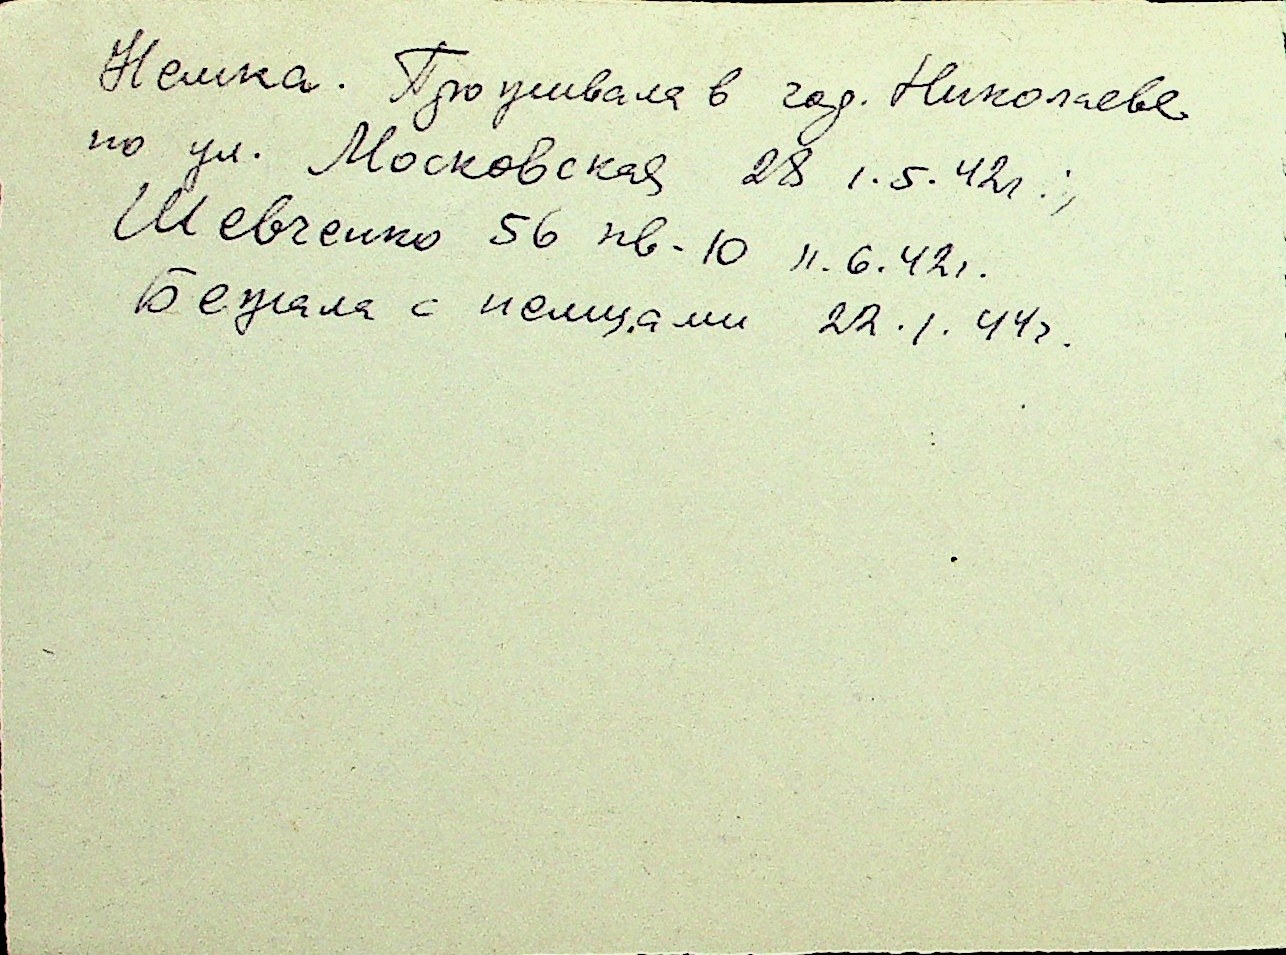 Немка. Проживала в гор. Николаеве
по ул. Московская 28 1.5.42г.;
Шевченко 56 кв-10 11.6.42г.
Бежала с немцами 22.1.44г.